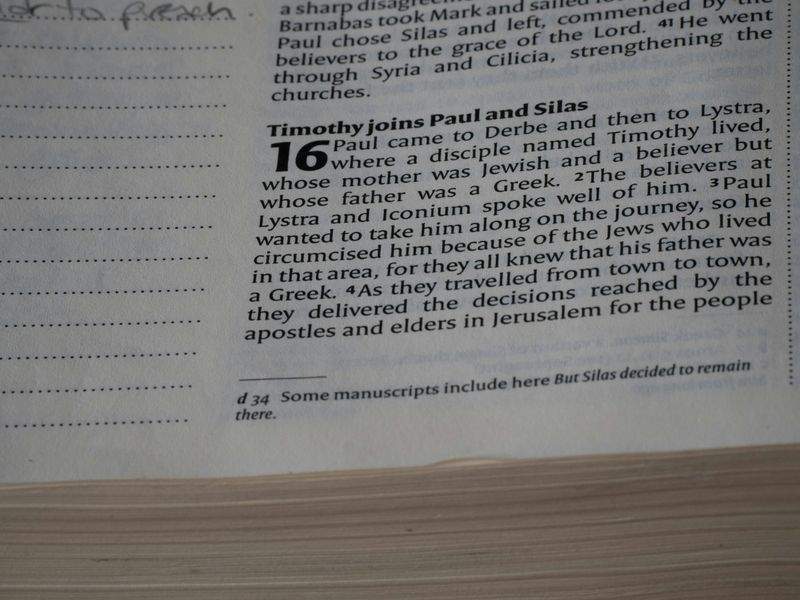 to preach.
a sharp
Barnabas took Mark and sailed
Paul chose Silas and left, commended by the
believers to the grace of the Lord. 41 He went
through Syria and Cilicia, strengthening the
churches.
Timothy joins Paul and Silas
16 Paul came to Derbe and then to Lystra,
where a disciple named Timothy lived,
whose mother was Jewish and a believer but
whose father was a Greek. 2 The believers at
Lystra and Iconium spoke well of him. 3 Paul
wanted to take him along on the journey, so he
circumcised him because of the Jews who lived
in that area, for they all knew that his father was
a Greek. 4 As they travelled from town to town,
they delivered the decisions reached by the
apostles and elders in Jerusalem for the people
d 34 Some manuscripts include here But Silas decided to remain
there.